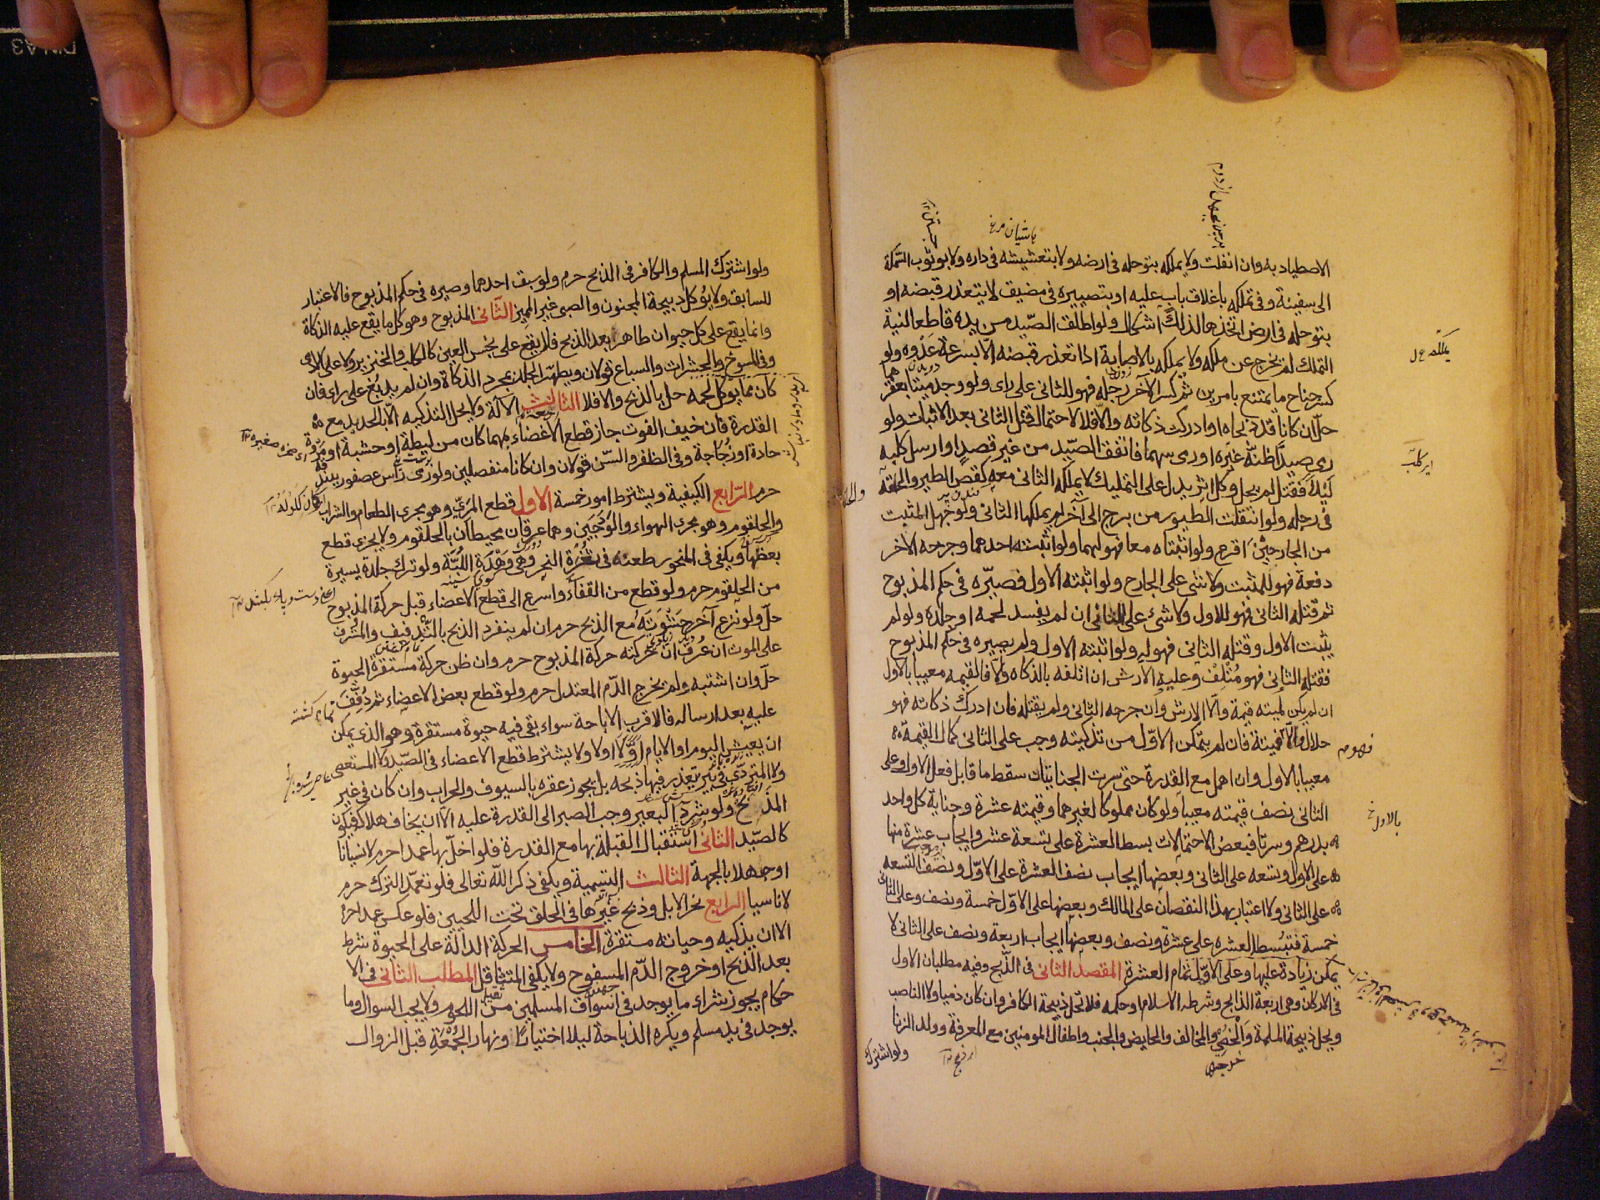 الاصطياد به وان انفلت ولا يملكه بتوحله في ارضه ولا بتعشيشه في داره ولا بوثوب السمكة
الى سفينة وفي تملكه باغلاق باب عليه او بتصييره في مضيق لا يتعذر قبضه او
بتوحله في ارض اتخذها لذلك اشكال ولو اطلق الصيد من يده قاطعا لنية
التملك لم يخرج عن ملكه ولا يملكه بالاصابة اذا تعذر قبضه الا بسرعة عدوه ولو
كسر جناح ما يمتنع بامرين ثم كسر الآخر رجله فهو للثاني على راى ولو وجد ميتا بعقر
حل ان كانا قد ذبحاه او ادرك ذكاته والا فلا لاحتمال قتل الثاني بعد الاثبات ولو
رمى صيدا ظنه غيره او رمى سهما فاتفق الصيد من غير قصد او ارسل كلبه
ليلا فقتل لم يحل وكل اثر يدل على التمليك لا يملكه الثاني معه كقص الطير والحلقة
في رجله ولو انتقلت الطيور من برج الى آخر لم يملكها الثاني ولو جهل المثبت
من الجارحين اقرع ولو اثبتاه معا فهو لهما ولو اثبته احدهما وجرحه الآخر
دفعة فهو للمثبت ولا شئ على الجارح ولو اثبته الاول فصيره في حكم المذبوح
ثم قتله الثاني فهو للاول ولا شئ على الثاني ان لم يفسد لحمه او جلده ولو لم
يثبت الاول وقتله الثاني فهو له ولو اثبته الاول ولم يصيره في حكم المذبوح
فقتله الثاني فهو متلف وعليه الارش ان اتلفه بالذكاة والا فالقيمة معيبا بالاول
ان لم يكن لميته قيمة والا الارش وان جرحه الثاني ولم يقتله فان ادرك ذكاته فهو
حلال والا فميتة فان لم يتمكن الاول من تذكيته وجب على الثاني كمال القيمة
معيبا بالاول وان اهمل مع القدرة حتى سرت الجنايتان سقط ما قابل فعل الاول وعلى
الثاني نصف قيمته معيبا ولو كان مملوكا لغيرهما وقيمته عشرة وجناية كل واحد
بدرهم وسرتا فبعض الاحتمالات بسط العشرة على تسعة عشر وايجاب عشرة منها
على الاول وتسعة على الثاني وبعضها ايجاب نصف العشرة على الاول ونصف التسعه
على الثاني ولا اعتبار بهذا النقصان على المالك وبعضها على الاول خمسة ونصف وعلى الثاني
خمسة فتبسط العشره على عشرة ونصف وبعضها ايجاب اربعة ونصف على الثاني لا
يمكن زيادة عليها وعلى الاول تمام العشرة المقصد الثاني في الذبح وفيه مطلبان الاول
في الاركان وهي اربعة الذابح وشرطه الاسلام او حكمه فلا تحل ذبيحة الكافر وان كان ذميا ولا الناصب
ويحل ذبيحة المسلمة والخصي والمخالف والحايض والجنب واطفال المومنين مع المعرفة وولد الزنا
ولو اشترك
باشيان مرغ
بالاول خ
ولو اشترك المسلم والكافر في الذبح حرم ولو سبق احدهما وصيره في حكم المذبوح فالاعتبار
للسابق ولا يؤكل ذبيحة المجنون والصبي غير المميز الثاني المذبوح وهو كل ما يقع عليه الذكاة
وانما يقع على كل حيوان طاهر بعد الذبح فلا يقع على نجس العين كالكلب والخنزير ولا على الآدمي
وفي المسوخ والحشرات والسباع قولان ويطهر الجلد بمجرد الذكاة وان لم يدبغ على راى فان
كان مما يؤكل لحمه حل بالذبح والا فلا الثالث الآلة ولا يحل التذكيه الا بالحديد مع
القدرة فان خيف الفوت جاز قطع الاعضاء بمهما كان من ليطة او خشبة او مروة
حادة او زجاجة وفي الظفر والسن قولان وان كانا منفصلين ولو رمى راس عصفور ببندقة
حرم الرابع الكيفية ويشترط امور خمسة الاول قطع المرئ وهو مجرى الطعام والشراب
والحلقوم وهو مجرى الهواء والودجين وهما عرقان محيطان بالحلقوم ولا يجزى قطع
بعضها ويكفي في المنحور طعنه في ثغرة النحر وهي وهدة اللبة ولو ترك جلدة يسيرة
من الحلقوم حرم ولو قطع من القفاء واسرع الى قطع الاعضاء قبل حركة المذبوح
حل ولو نزع آخر حشوته مع الذبح حرم ان لم ينفرد الذبح بالتذفيف والمشرف
على الموت ان عرف ان حركته حركة المذبوح حرم وان ظن حركة مستقرة الحيوة
حل وان اشتبه ولم يخرج الدم المعتدل حرم ولو قطع بعض الاعضاء ثم ذفف
عليه بعد ارساله فالاقرب الاباحة سواء بقى فيه حيوة مستقرة وهو الذى يمكن
ان يعيش اليوم او الايام او لا ولا يشترط قطع الاعضاء في الصيد ولا المستعصي
ولا المتردي في بئر يتعذر فيها ذبحه بل يجوز عقره بالسيوف والحراب وان كان في غير
المذبح ولو شرد البعير وجب الصبر الى القدرة عليه الا ان يخاف هلاكه فيكون
كالصيد الثاني استقبال القبلة بها مع القدرة فلو اخل بها عمدا حرم لا نسيانا
او جهلا بالجهة الثالث التسمية ويكفي ذكر الله تعالى فلو تعمد الترك حرم
لا ناسيا الرابع نحر الابل وذبح غيرها في الحلق تحت اللحيين فلو عكس عمدا حرم
الا ان يذكيه وحياته مستقرة الخامس الحركة الدالة على الحيوة شرط
بعد الذبح او خروج الدم المسفوح ولا يكفي المتثاقل المطلب الثاني في الا
حكام يجوز شراء ما يوجد في اسواق المسلمين من اللحوم ولا يجب السوال وما
يوجد في يد مسلم ويكره الذباحة ليلا اختيارا ونهار الجمعة قبل الزوال